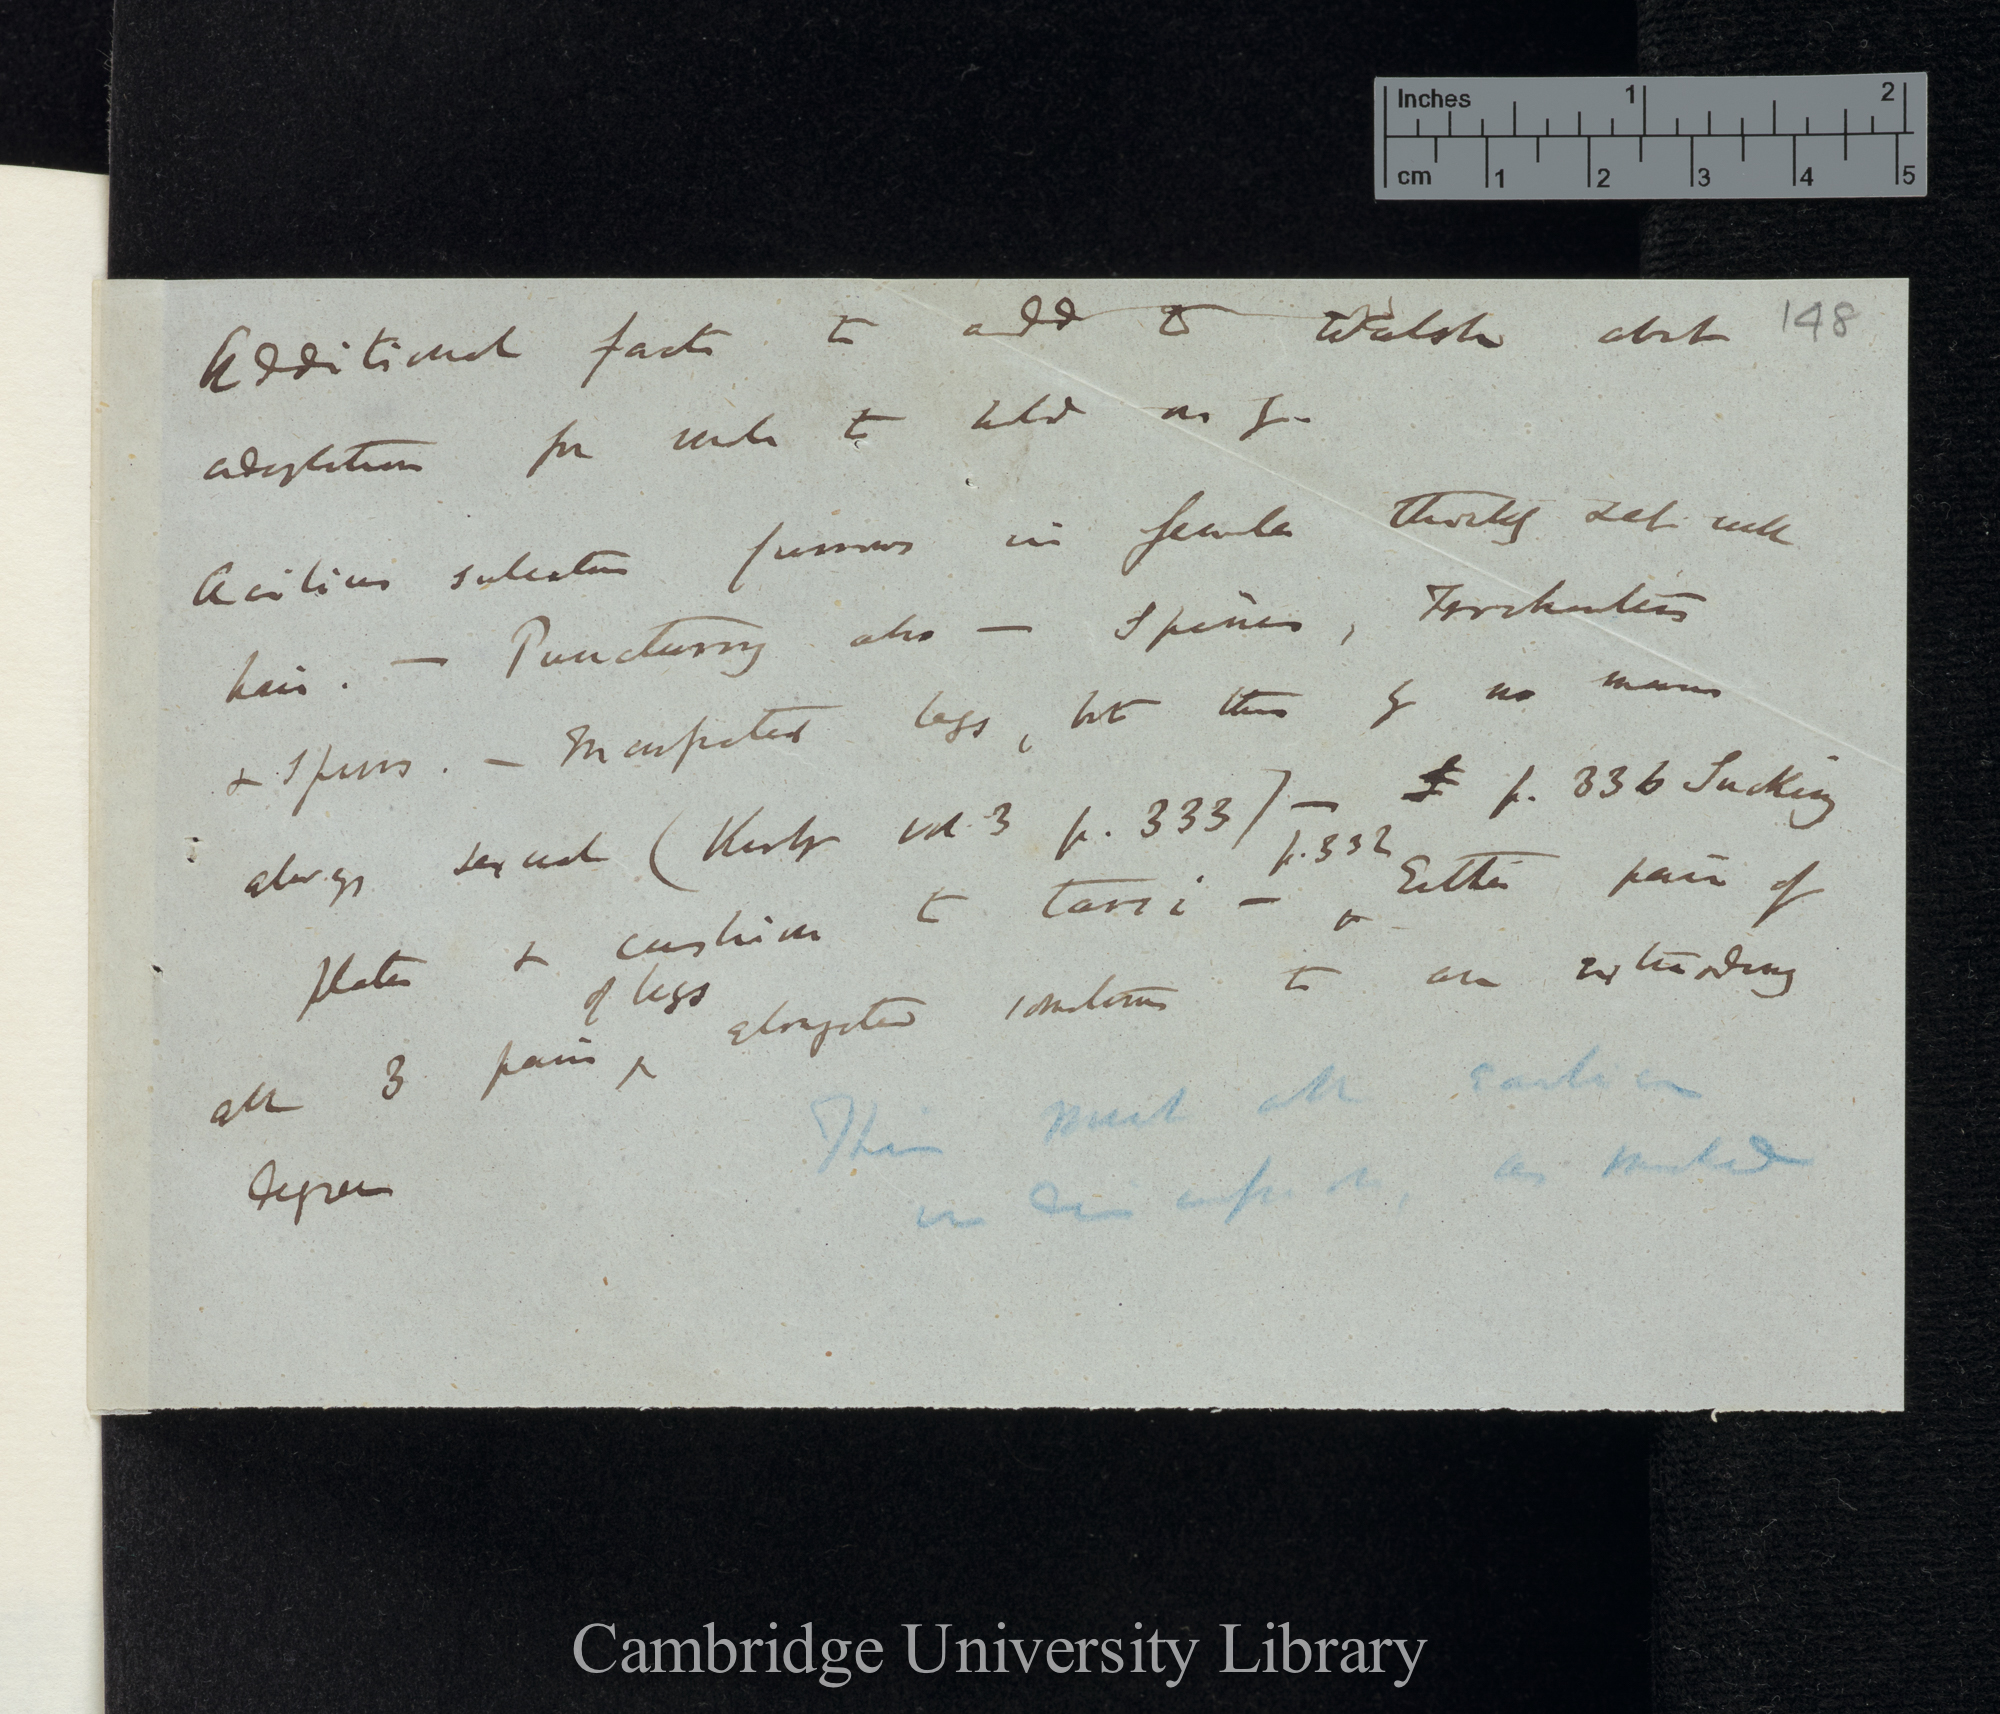 Inches 1 2
cm 1 2 3 4 5
148
Additional facts to add to Walsh about
adaptation for male to hold on by.
Acilius sulcatus furrows in female thickly set with
hair. — Puncturing also — Spines, Trochanters
& Spurs. — Incrassated legs, but this by no means
always sexual (Kirby vol. 3 p. 333) — p. 336 Sucking
plates & cushion to tarsi — p. 332 Either pair or
all 3 pairs of legs elongated sometimes to an extraordinary
degree
must all
in as
Cambridge University Library